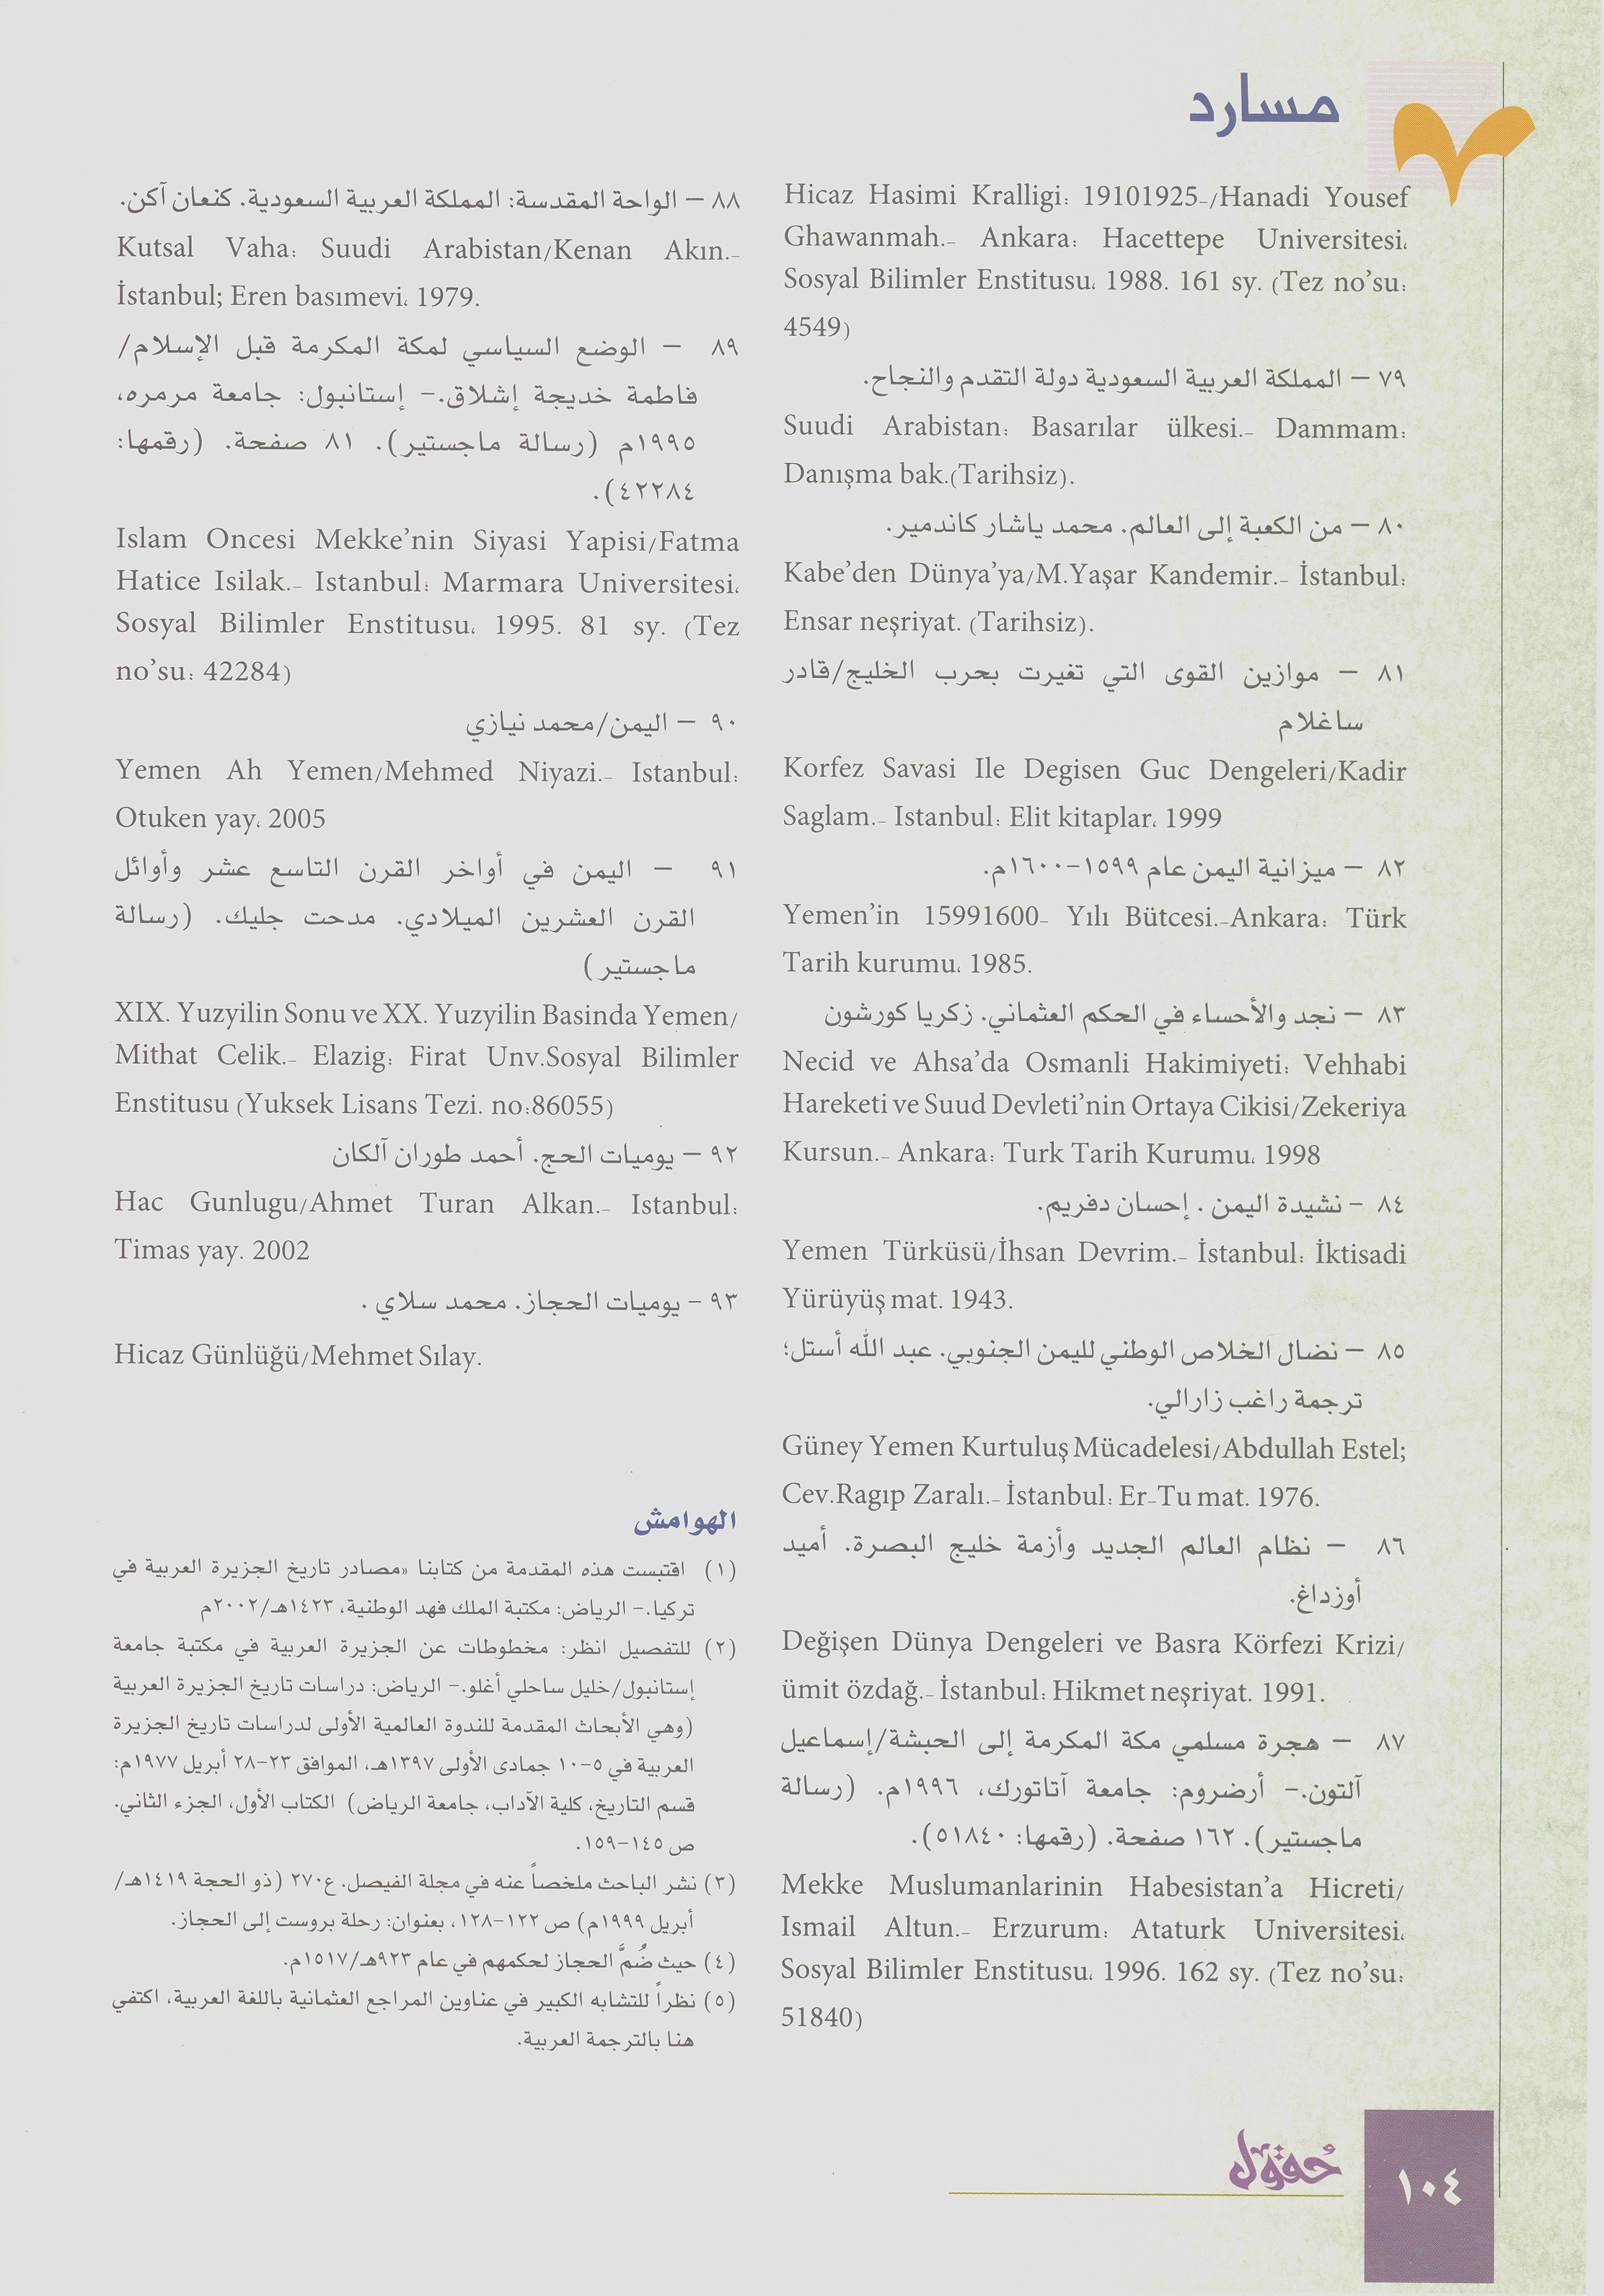 مسارد
Hicaz Hasimi Kralligi: 19101925-/Hanadi Yousef
Ghawanmah.- Ankara: Hacettepe Universitesi،
Sosyal Bilimler Enstitusu، 1988. 161 sy. (Tez no’su:
4549)
٧٩ – المملكة العربية السعودية دولة التقدم والنجاح.
Suudi Arabistan: Basarılar ülkesi.- Dammam:
Danışma bak.(Tarihsiz).
٨٠ – من الكعبة إلى العالم. محمد ياشار كاندمير.
Kabe’den Dünya’ya/M.Yaşar Kandemir.- İstanbul:
Ensar neşriyat. (Tarihsiz).
٨١ – موازين القوى التي تغيرت بحرب الخليج/قادر
ساغلام
Korfez Savasi Ile Degisen Guc Dengeleri/Kadir
Saglam.- Istanbul: Elit kitaplar، 1999
٨٢ – ميزانية اليمن عام ١٥٩٩-١٦٠٠م.
Yemen’in 15991600- Yılı Bütcesi.-Ankara: Türk
Tarih kurumu، 1985.
٨٣ – نجد والأحساء في الحكم العثماني. زكريا كورشون
Necid ve Ahsa’da Osmanli Hakimiyeti: Vehhabi
Hareketi ve Suud Devleti’nin Ortaya Cikisi/Zekeriya
Kursun.- Ankara: Turk Tarih Kurumu، 1998
٨٤ – نشيدة اليمن . إحسان دفريم.
Yemen Türküsü/İhsan Devrim.- İstanbul: İktisadi
Yürüyüş mat. 1943.
٨٥ – نضال الخلاص الوطني لليمن الجنوبي. عبد الله أستل؛
ترجمة راغب زارالي.
Güney Yemen Kurtuluş Mücadelesi/Abdullah Estel;
Cev.Ragıp Zaralı.- İstanbul: Er-Tu mat. 1976.
٨٦ – نظام العالم الجديد وأزمة خليج البصرة. أميد
أوزداغ.
Değişen Dünya Dengeleri ve Basra Körfezi Krizi/
ümit özdağ.- İstanbul: Hikmet neşriyat. 1991.
٨٧ – هجرة مسلمي مكة المكرمة إلى الحبشة/إسماعيل
آلتون.- أرضروم: جامعة آتاتورك، ١٩٩٦م. (رسالة
ماجستير). ١٦٢ صفحة. (رقمها: ٥١٨٤٠).
Mekke Muslumanlarinin Habesistan’a Hicreti/
Ismail Altun.- Erzurum: Ataturk Universitesi،
Sosyal Bilimler Enstitusu، 1996. 162 sy. (Tez no’su:
51840)
٨٨ – الواحة المقدسة: المملكة العربية السعودية. كنعان آكن.
Kutsal Vaha: Suudi Arabistan/Kenan Akın.-
İstanbul; Eren basımevi، 1979.
٨٩ – الوضع السياسي لمكة المكرمة قبل الإسلام/
فاطمة خديجة إشلاق.- إستانبول: جامعة مرمره،
١٩٩٥م (رسالة ماجستير). ٨١ صفحة. (رقمها:
٤٢٢٨٤).
Islam Oncesi Mekke’nin Siyasi Yapisi/Fatma
Hatice Isilak.- Istanbul: Marmara Universitesi،
Sosyal Bilimler Enstitusu، 1995. 81 sy. (Tez
no’su: 42284)
٩٠ – اليمن/محمد نيازي
Yemen Ah Yemen/Mehmed Niyazi.- Istanbul:
Otuken yay، 2005
٩١ – اليمن في أواخر القرن التاسع عشر وأوائل
القرن العشرين الميلادي. مدحت جليك. (رسالة
ماجستير)
XIX. Yuzyilin Sonu ve XX. Yuzyilin Basinda Yemen/
Mithat Celik.- Elazig: Firat Unv.Sosyal Bilimler
Enstitusu (Yuksek Lisans Tezi. no:86055)
٩٢ – يوميات الحج. أحمد طوران آلكان
Hac Gunlugu/Ahmet Turan Alkan.- Istanbul:
Timas yay. 2002
٩٣ – يوميات الحجاز. محمد سلاي .
Hicaz Günlüğü/Mehmet Sılay.
الهوامش
(١) اقتبست هذه المقدمة من كتابنا «مصادر تاريخ الجزيرة العربية في
تركيا.- الرياض: مكتبة الملك فهد الوطنية، ١٤٢٣هـ/٢٠٠٢م
(٢) للتفصيل انظر: مخطوطات عن الجزيرة العربية في مكتبة جامعة
إستانبول/خليل ساحلي أغلو.- الرياض: دراسات تاريخ الجزيرة العربية
(وهي الأبحاث المقدمة للندوة العالمية الأولى لدراسات تاريخ الجزيرة
العربية في ٥-١٠ جمادى الأولى ١٣٩٧هـ، الموافق ٢٣-٢٨ أبريل ١٩٧٧م:
قسم التاريخ، كلية الآداب، جامعة الرياض) الكتاب الأول، الجزء الثاني.
ص ١٤٥-١٥٩.
(٣) نشر الباحث ملخصاً عنه في مجلة الفيصل. ع٢٧٠ (ذو الحجة ١٤١٩هـ/
أبريل ١٩٩٩م) ص ١٢٢-١٢٨، بعنوان: رحلة بروست إلى الحجاز.
(٤) حيث ضُمَّ الحجاز لحكمهم في عام ٩٢٣هـ/١٥١٧م.
(٥) نظراً للتشابه الكبير في عناوين المراجع العثمانية باللغة العربية، اكتفي
هنا بالترجمة العربية.
حُقول
١٠٤